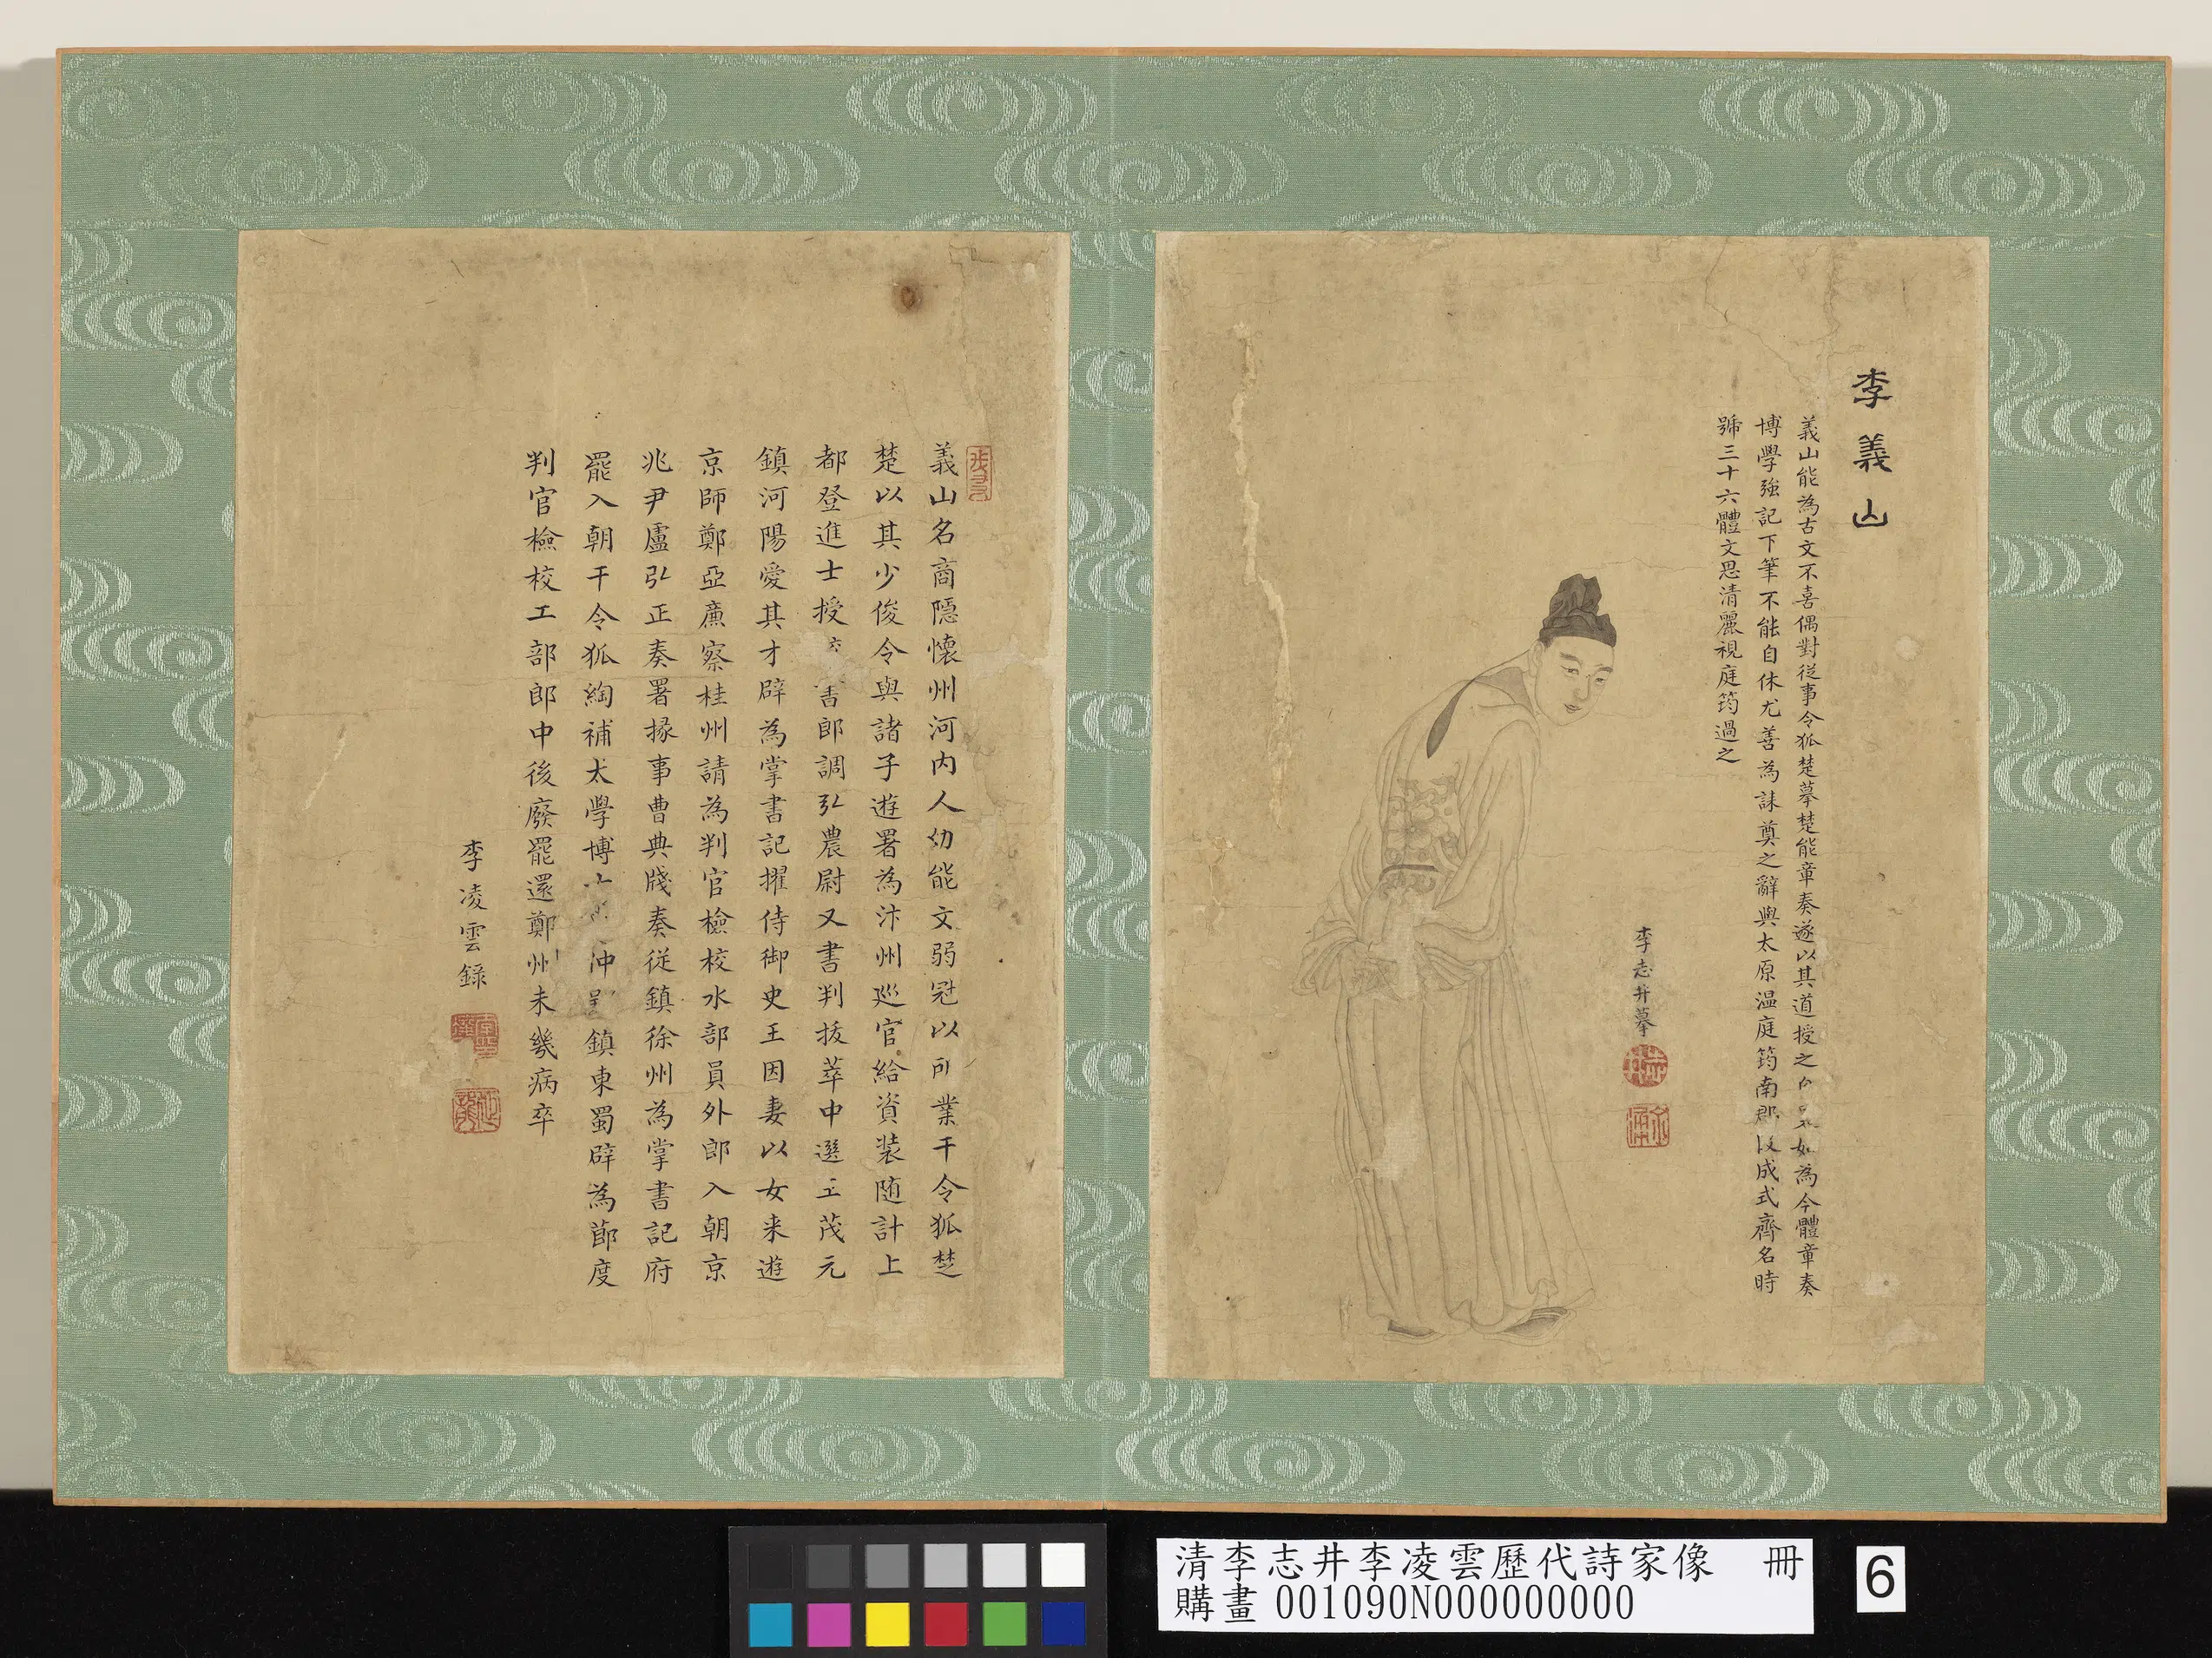 李義山
義山能為古文不喜偶對從事令狐楚幕楚能章奏遂以其道授之 如為今體章奏
博學強記下筆不能自休尤善為誄奠之辭與太原温庭筠南郡段成式齊名時
號三十六體文思清麗視庭筠過之
李志井摹
義山名商隱懷州河内人幼能文弱冠以所業干令狐楚
楚以其少俊令與諸子遊署為汴州廵官給資装随計上
都登進士授 書郎調弘農尉又書判拔萃中選王茂元
鎮河陽愛其才辟為掌書記擢侍御史王因妻以女来遊
京師鄭亞廉察桂州請為判官檢校水部員外郎入朝京
兆尹盧弘正奏署掾事曹典牋奏従鎮徐州為掌書記府
罷入朝干令狐綯補太學博 沖 鎮東蜀辟為節度
判官檢校工部郎中後廢罷還鄭州未幾病卒
李凌雲錄
清李志井李凌雲歷代詩家像 冊
購畫 001090N000000000
6